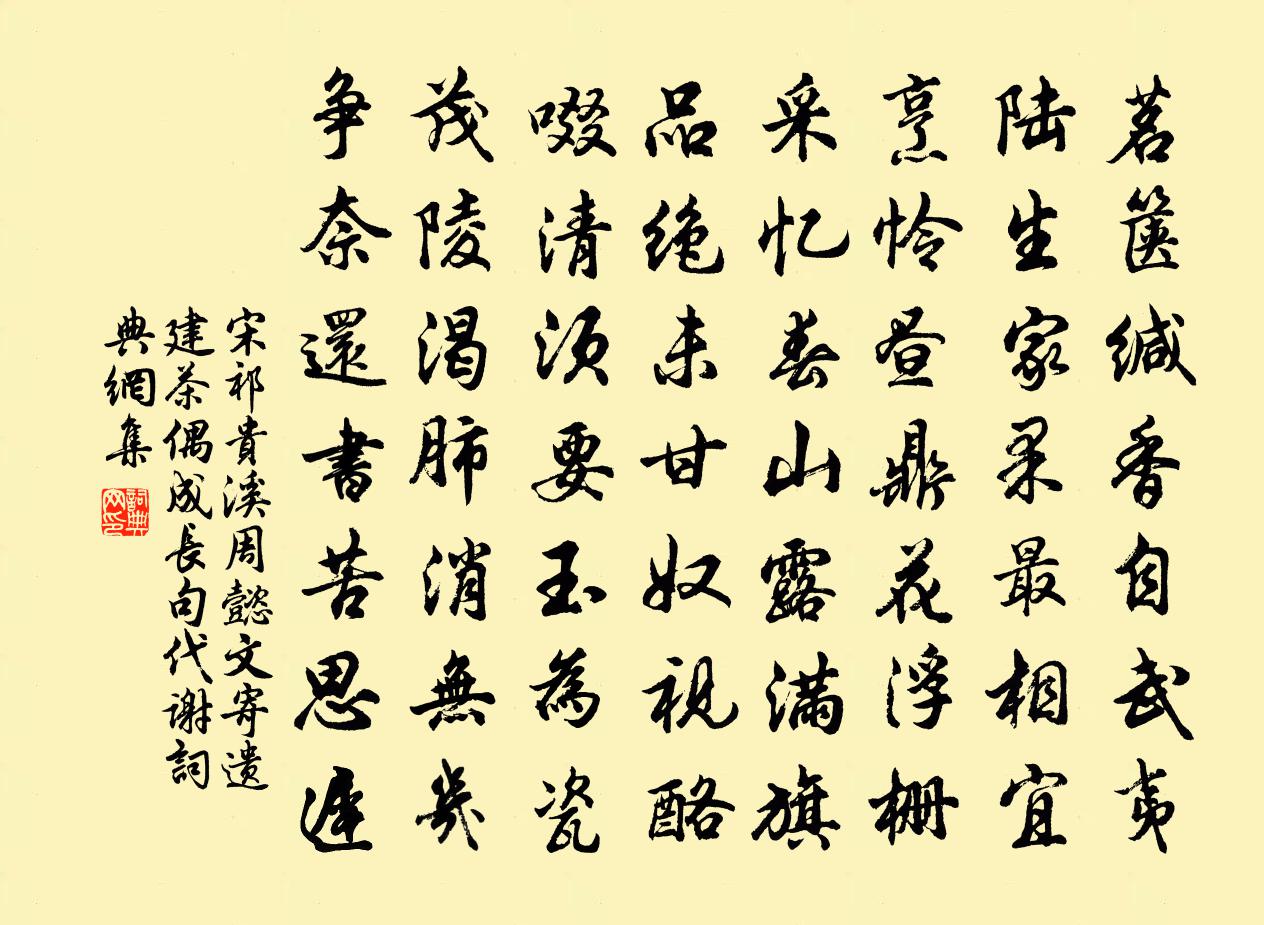 茗篋缄香自武夷
陆生家果最相宜
烹怜昼鼎花浮栅
采忆春山露满旗
品绝未甘奴視酪
啜清须要玉為瓷
茂陵渴肺消無幾
争奈還書苦思遲
宋祁貴溪周懿文寄遗
建茶偶成長句代谢詞
典網集
詞典
网印